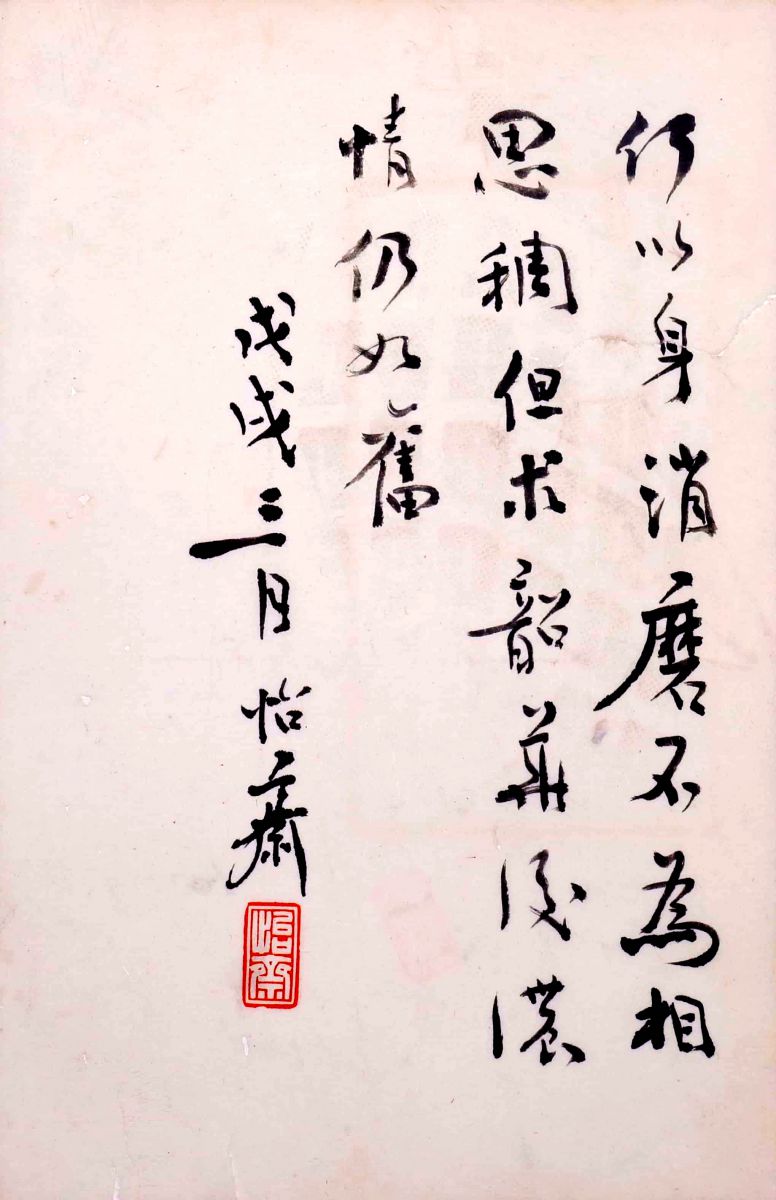 何以身消磨不為相
思稠但求韶華後濃
情仍如舊
戊戌三月怡齋
怡齋